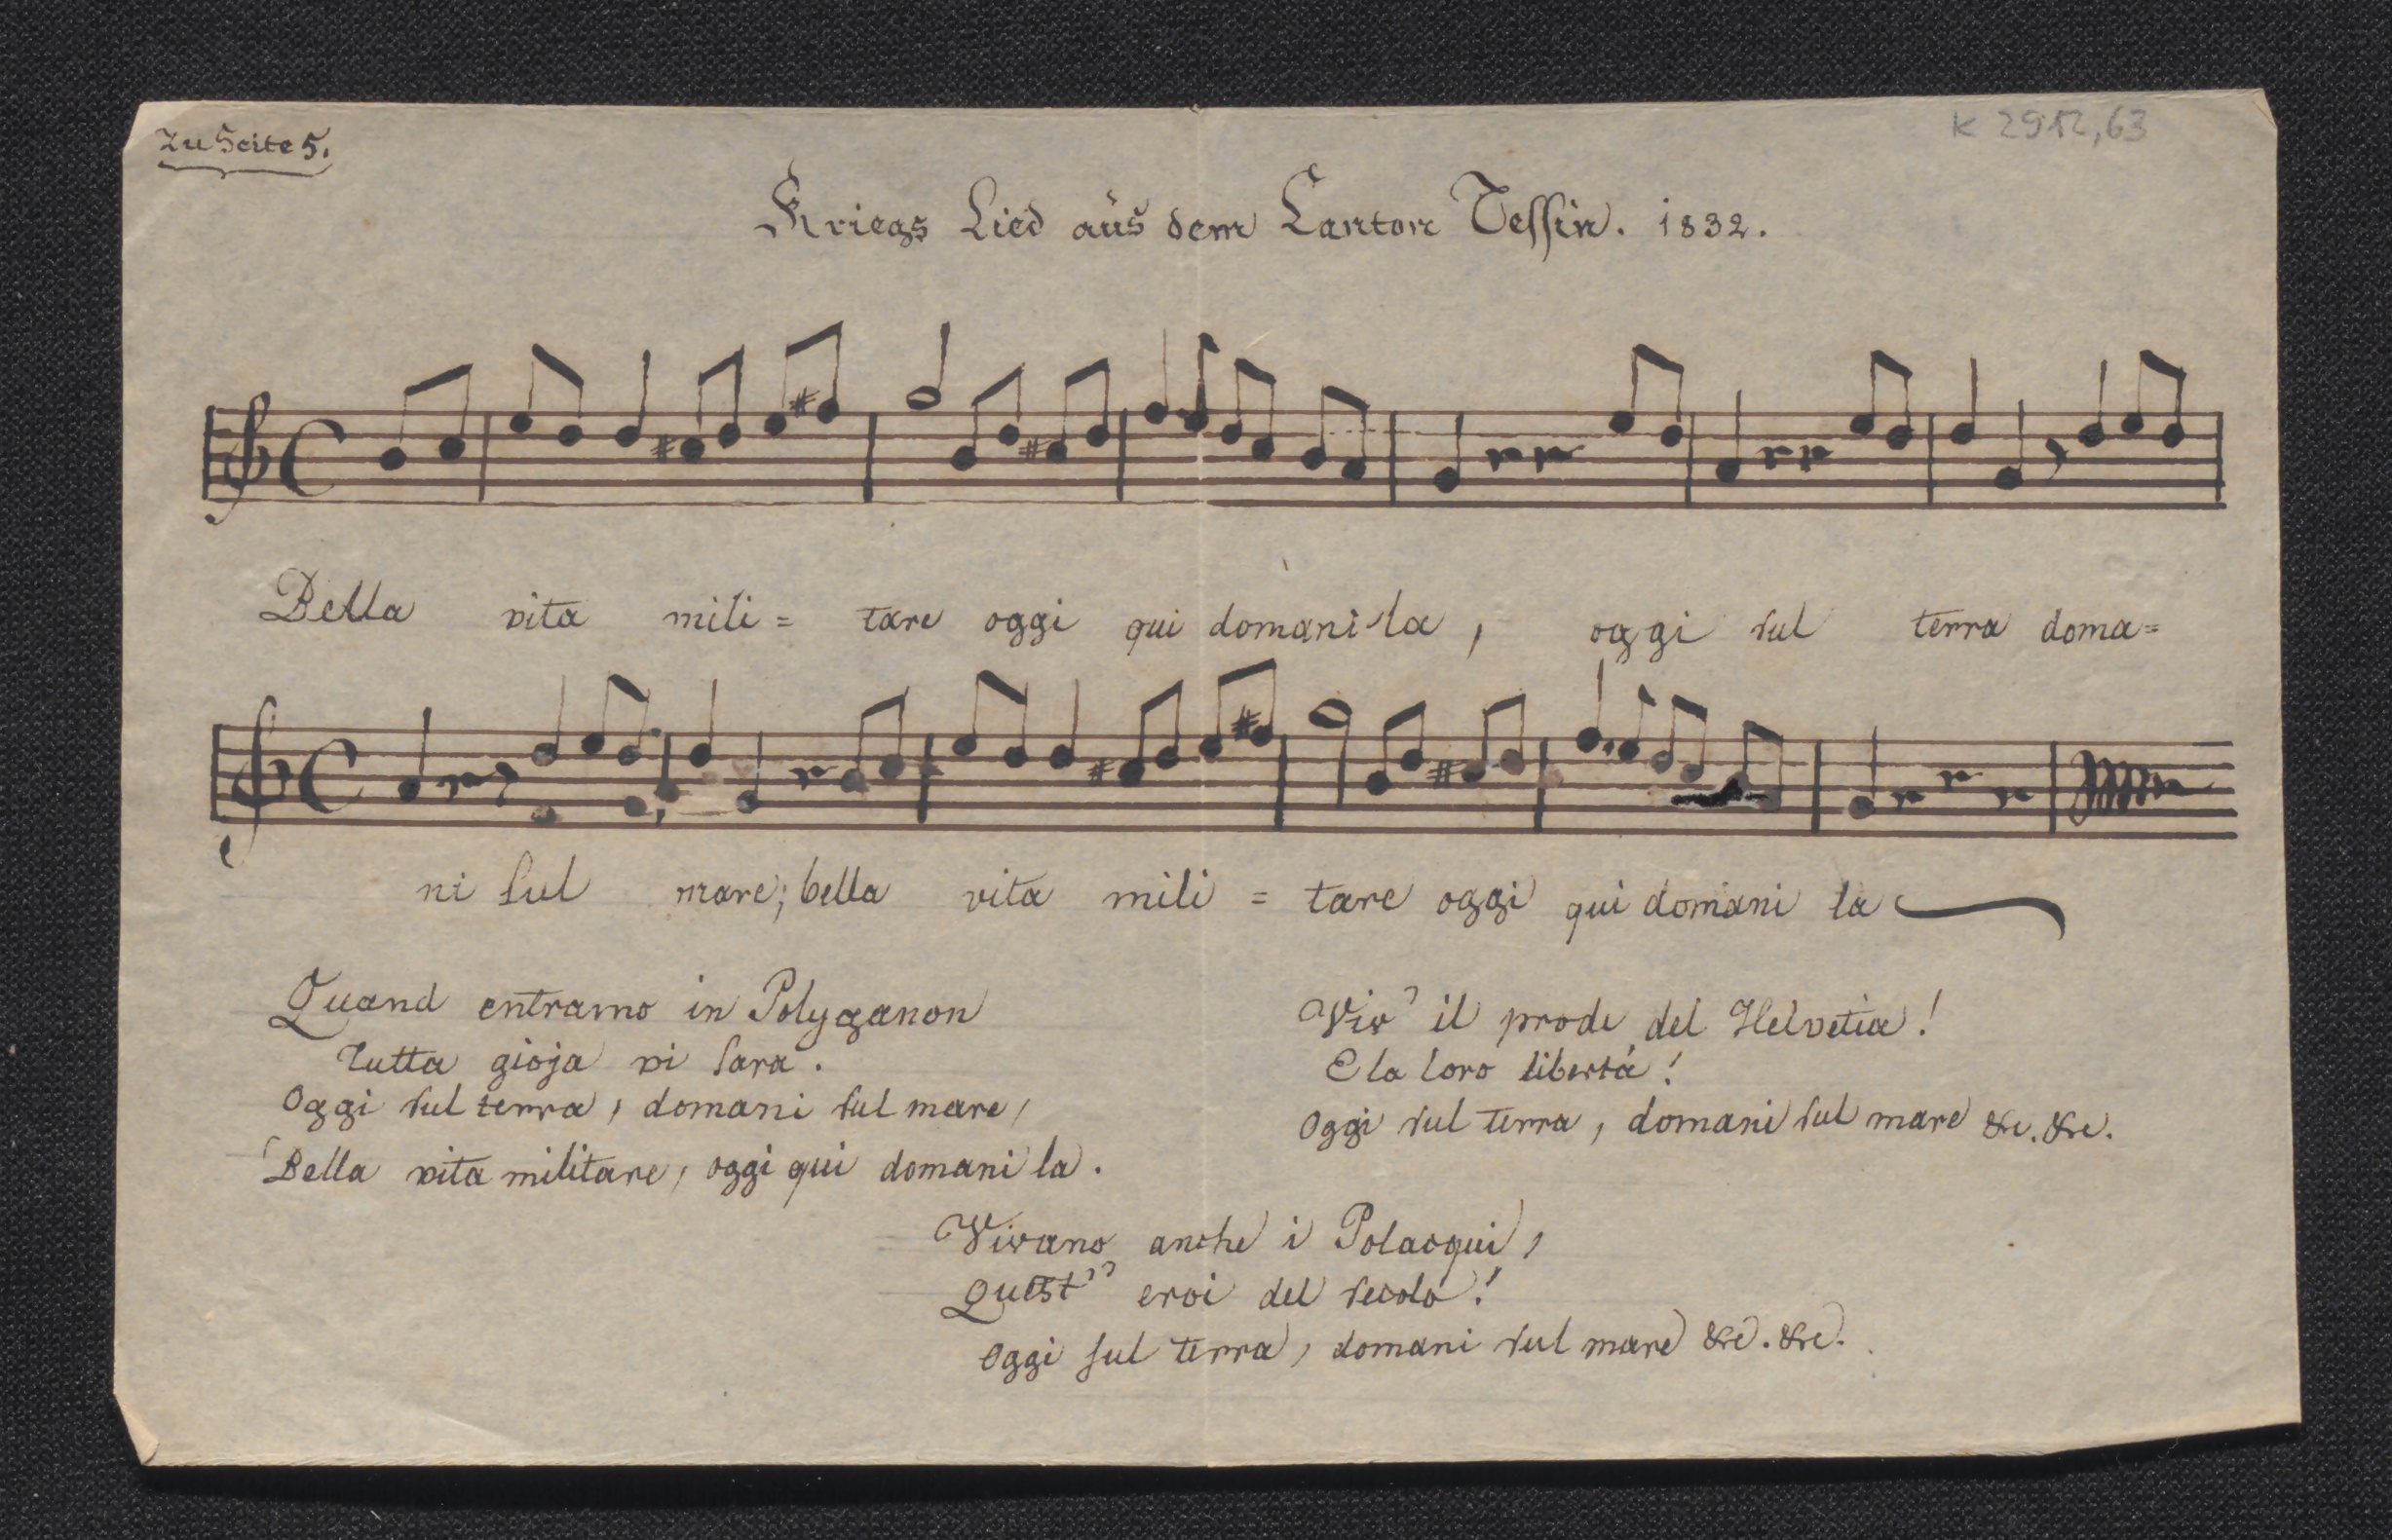 Zu Seite 5.
K 2912,63
Kriegs Lied aus dem Canton Tessin. 1832.
Bella vita mili= tare oggi qui domani la, oggi sul terra doma=
ni sul mare; bella vita mili = tare oggi qui domani la
Quand entramo in Polyganon
Tutta gioja vi sara.
Oggi sul terra, domani sul mare,
Bella vita militare, oggi qui domani la.
Viv' il prode del Helvetia!
E la loro libertá!
Oggi sul terra, domani sul mare &c. &c.
Vivano anche i Polacqui,
Quest'' eroi del secolo!
Oggi sul terra, domani sul mare &c. &c.